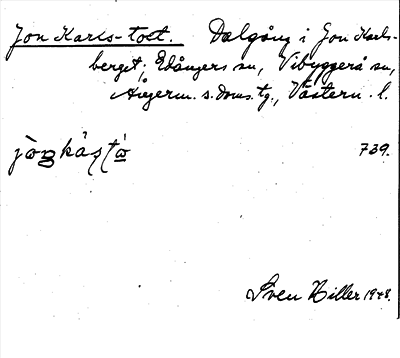 Jon Karls-tort. Dalgång i Jon Karls-
berget, Edångers sn, Vibyggerå sn,
Ångerm. s. doms. tg., Västern. l.
739.
Sven Hiller 1948.